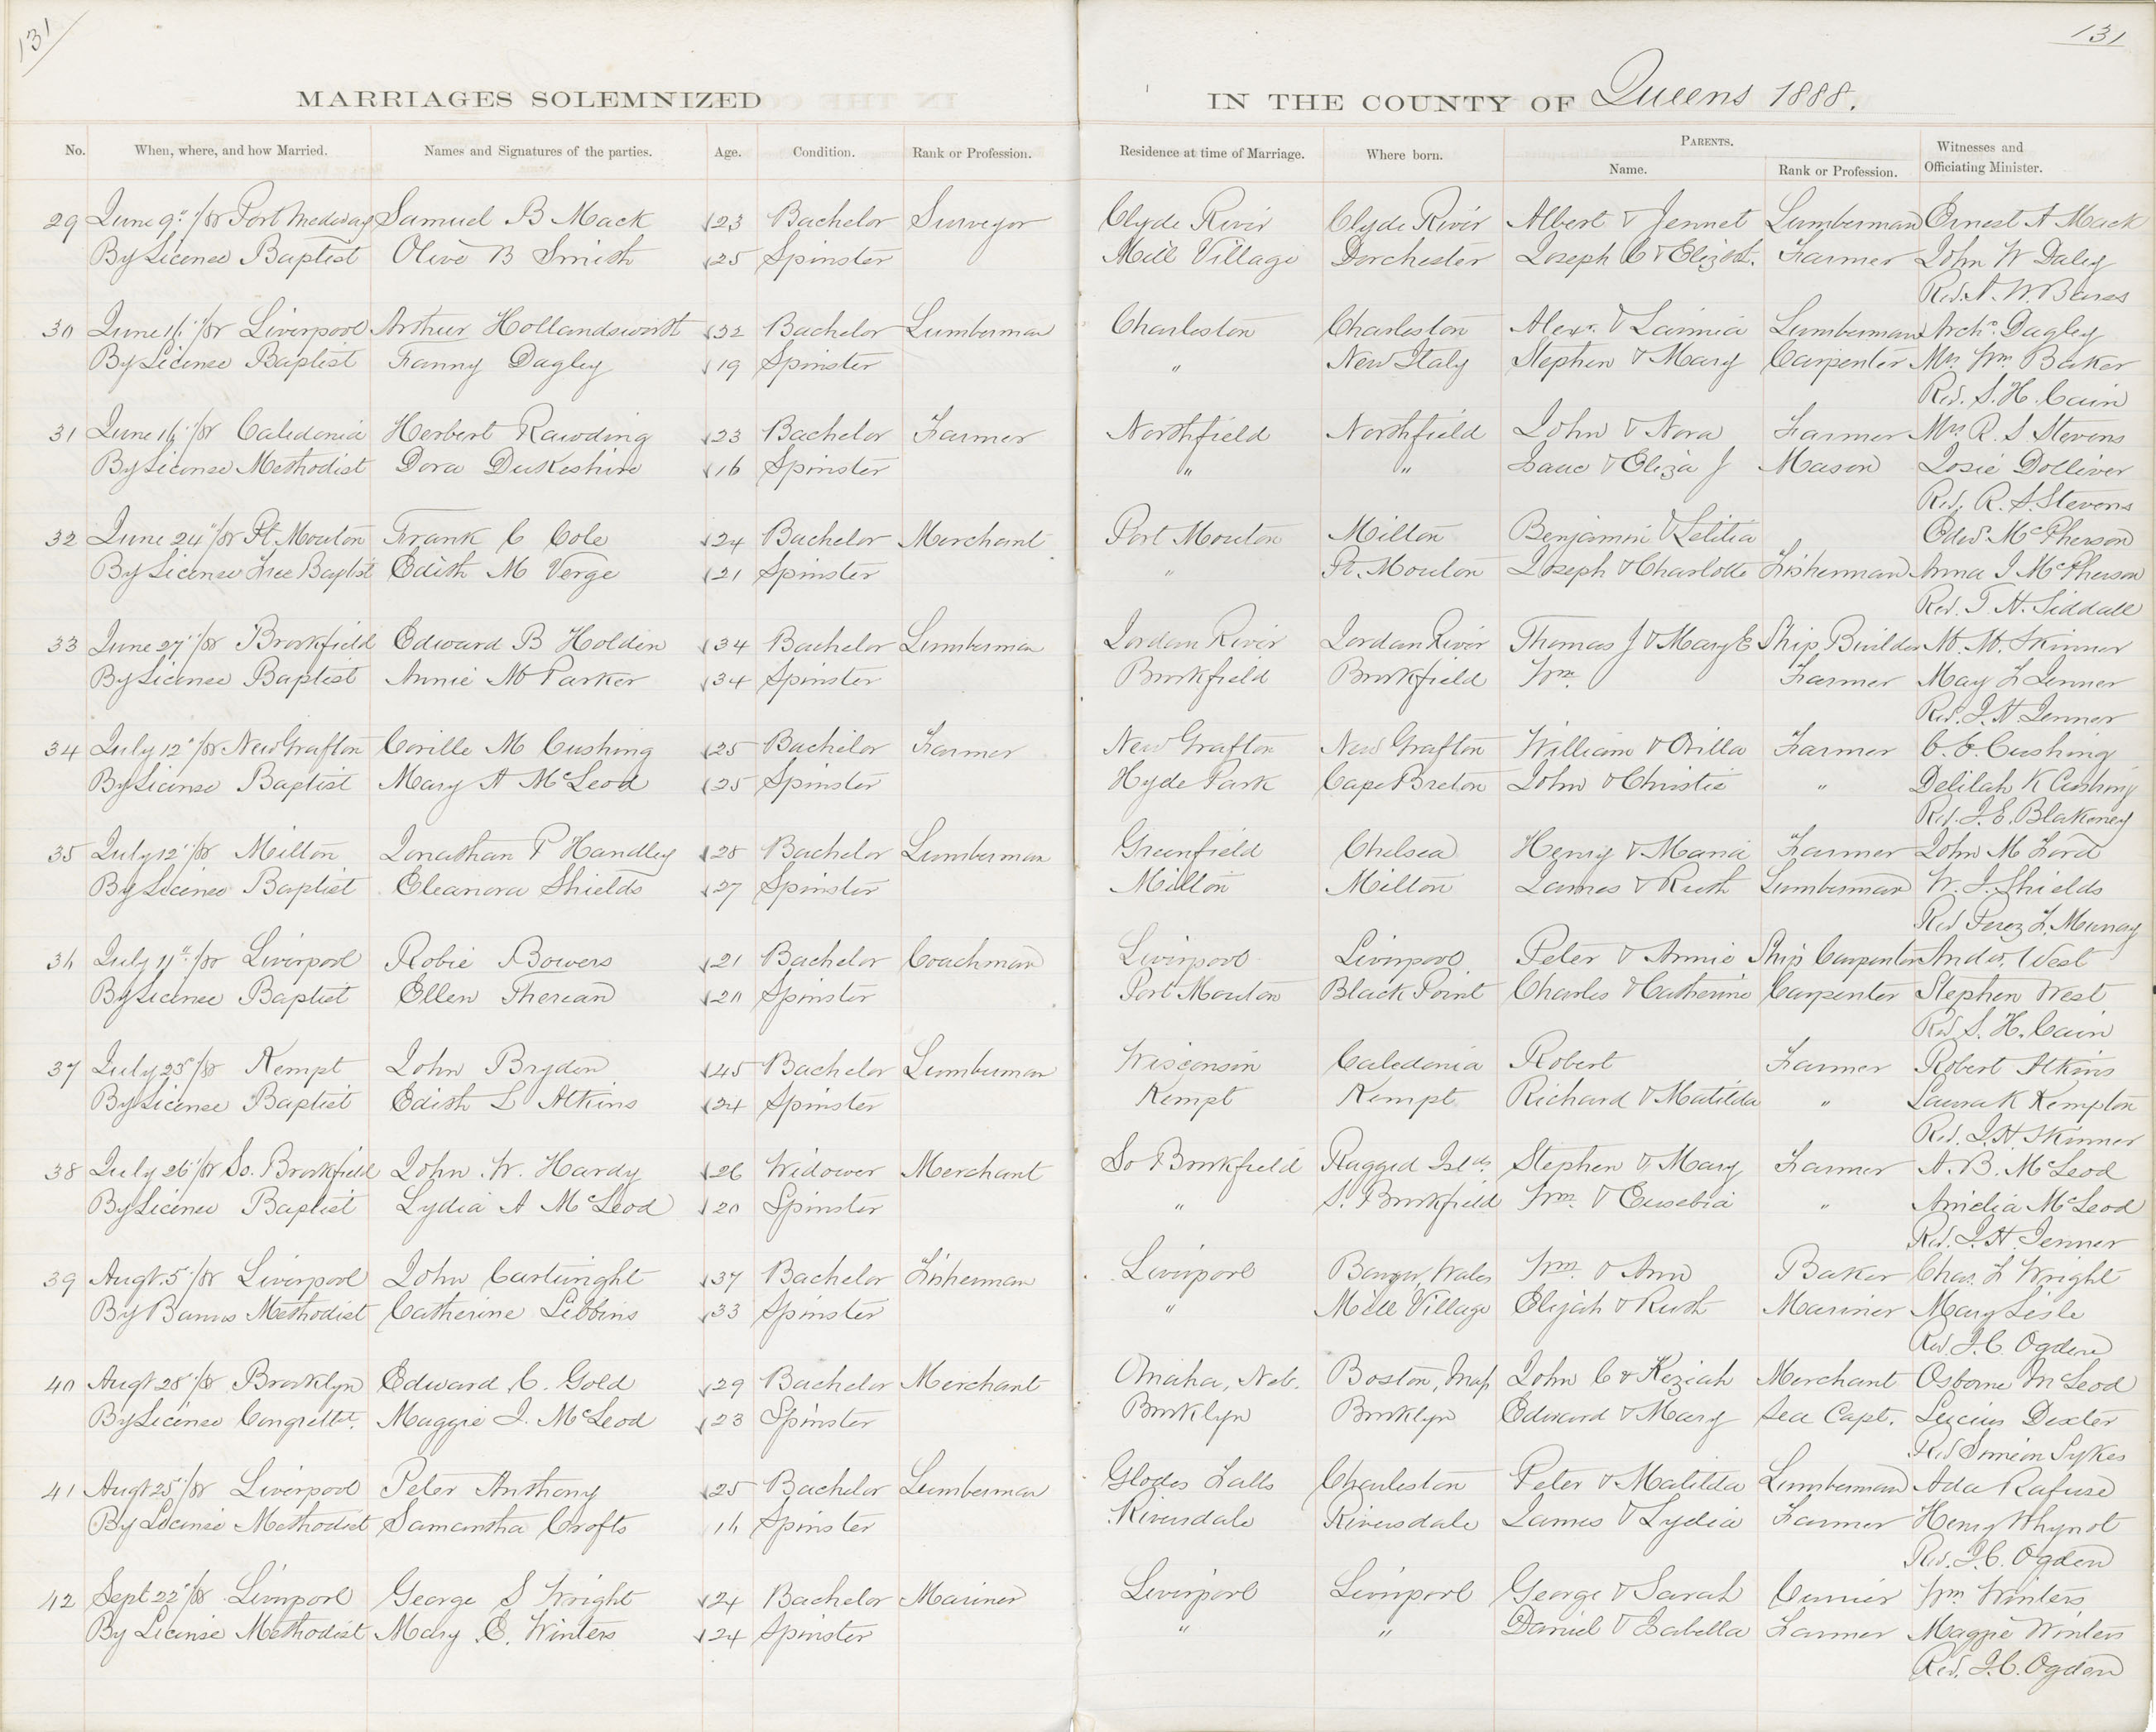 131
131
MARRIAGES SOLEMNIZED IN THE COUNTY OF Queens 1888.
No. When, where, and how Married. Names and Signatures of the parties. Age. Condition. Rank or Profession. Residence at time of Marriage. Where born. PARENTS. Name. Rank or Profession. Witnesses and Officiating Minister.
29 June 9" /88 Port Medway Samuel B Mack 23 Bachelor Surveyor Clyde River Clyde River Albert & Jennet Lumberman Ernest A Mack
By License Baptist Olive B Smith 25 Spinster Mill Village Dorchester Joseph C & Elizbt. Farmer John W Daley
Rev. A. W. Barss
30 June 16" /88 Liverpool Arthur Hollandsworth 32 Bachelor Lumberman Charleston Charleston Alexr. & Lavinia Lumberman Archd. Dagley
By License Baptist Fanny Dagley 19 Spinster " New Italy Stephen & Mary Carpenter Mrs Wm. Baker
Rev. S. H. Cain
31 June 16" /88 Caledonia Herbert Rawding 23 Bachelor Farmer Northfield Northfield John & Nora Farmer Mrs R. S Stevens
By License Methodist Dora Dukeshire 16 Spinster " " Isaac & Eliza J Mason Josie Dolliver
Rev. R. S. Stevens
32 June 24" /88 Pt. Mouton Frank C Cole 24 Bachelor Merchant Port Mouton Milton Benjamin & Letitia Edw. McPherson
By License Free Baptist Edith M Verge 21 Spinster " Pt. Mouton Joseph & Charlotte Fisherman Anna J McPherson
Rev. T. H. Siddall
33 June 27" /88 Brookfield Edward B Holden 34 Bachelor Lumberman Jordan River Jordan River Thomas J & Mary E Ship Builder M. M. Skinner
By License Baptist Annie M Parker 34 Spinster Brookfield Brookfield Wm. Farmer May F Jenner
Rev. J. H. Jenner
34 July 12" /88 New Grafton Corille M Cushing 25 Bachelor Farmer New Grafton New Grafton William & Orilla Farmer C. C. Cushing
By License Baptist Mary A McLeod 25 Spinster Hyde Park Cape Breton John & Christie " Delilah K Cushing
Rev. J. E. Blakeney
35 July 12" /88 Milton Jonathan P Handley 28 Bachelor Lumberman Greenfield Chelsea Henry & Maria Farmer John M Ford
By License Baptist Eleanora Shields 27 Spinster Milton Milton James & Ruth Lumberman W. J. Shields
Rev Perez F. Murray
36 July 11" /88 Liverpool Robie Bowers 21 Bachelor Coachman Liverpool Liverpool Peter & Annie Ship Carpenter Andw. West
By License Baptist Ellen Therean 20 Spinster Port Mouton Black Point Charles & Catherine Carpenter Stephen West
Rev S. H. Cain
37 July 25" /88 Kempt John Bryden 45 Bachelor Lumberman Wisconsin Caledonia Robert Farmer Robert Atkins
By License Baptist Edith L Atkins 24 Spinster Kempt Kempt Richard & Matilda " Laura K Kempton
Rev. J. H Skinner
38 July 26" /88 So. Brookfield John W. Hardy 26 Widower Merchant So Brookfield Ragged Islds. Stephen & Mary Farmer A. B. McLeod
By License Baptist Lydia A McLeod 20 Spinster " S. Brookfield Wm. & Eusebia " Amelia McLeod
Rev. J. H. Jenner
39 Augt. 5" /88 Liverpool John Cartwright 37 Bachelor Fisherman Liverpool Bangor, Wales Wm. & Ann Baker Chas. F Wright
By Banns Methodist Catherine Libbins 33 Spinster " Mill Village Elijah & Ruth Mariner Mary Lisle
Rev J. C. Ogden
40 Augt 28" /88 Brooklyn Edward C. Gold 29 Bachelor Merchant Omaha, Neb. Boston, Mass John C & Keziah Merchant Osborne McLeod
By License Congretl. Maggie J. McLeod 23 Spinster Brooklyn Brooklyn Edward & Mary Sea Capt. Lucius Dexter
Rev Simeon Sykes
41 Augt 25" /88 Liverpool Peter Anthony 25 Bachelor Lumberman Glodes Falls Charleston Peter & Matilda Lumberman Ada Rafuse
By License Methodist Samantha Crofts 16 Spinster Riversdale Riversdale James & Lydia Farmer Henry Whynot
Rev. J. C. Ogden
42 Sept 22" /88 Liverpool George S Wright 24 Bachelor Mariner Liverpool Liverpool George & Sarah Currier Wm Winters
By License Methodist Mary E. Winters 24 Spinster " " Daniel & Isabella Farmer Maggie Winters
Rev. J. C. Ogden